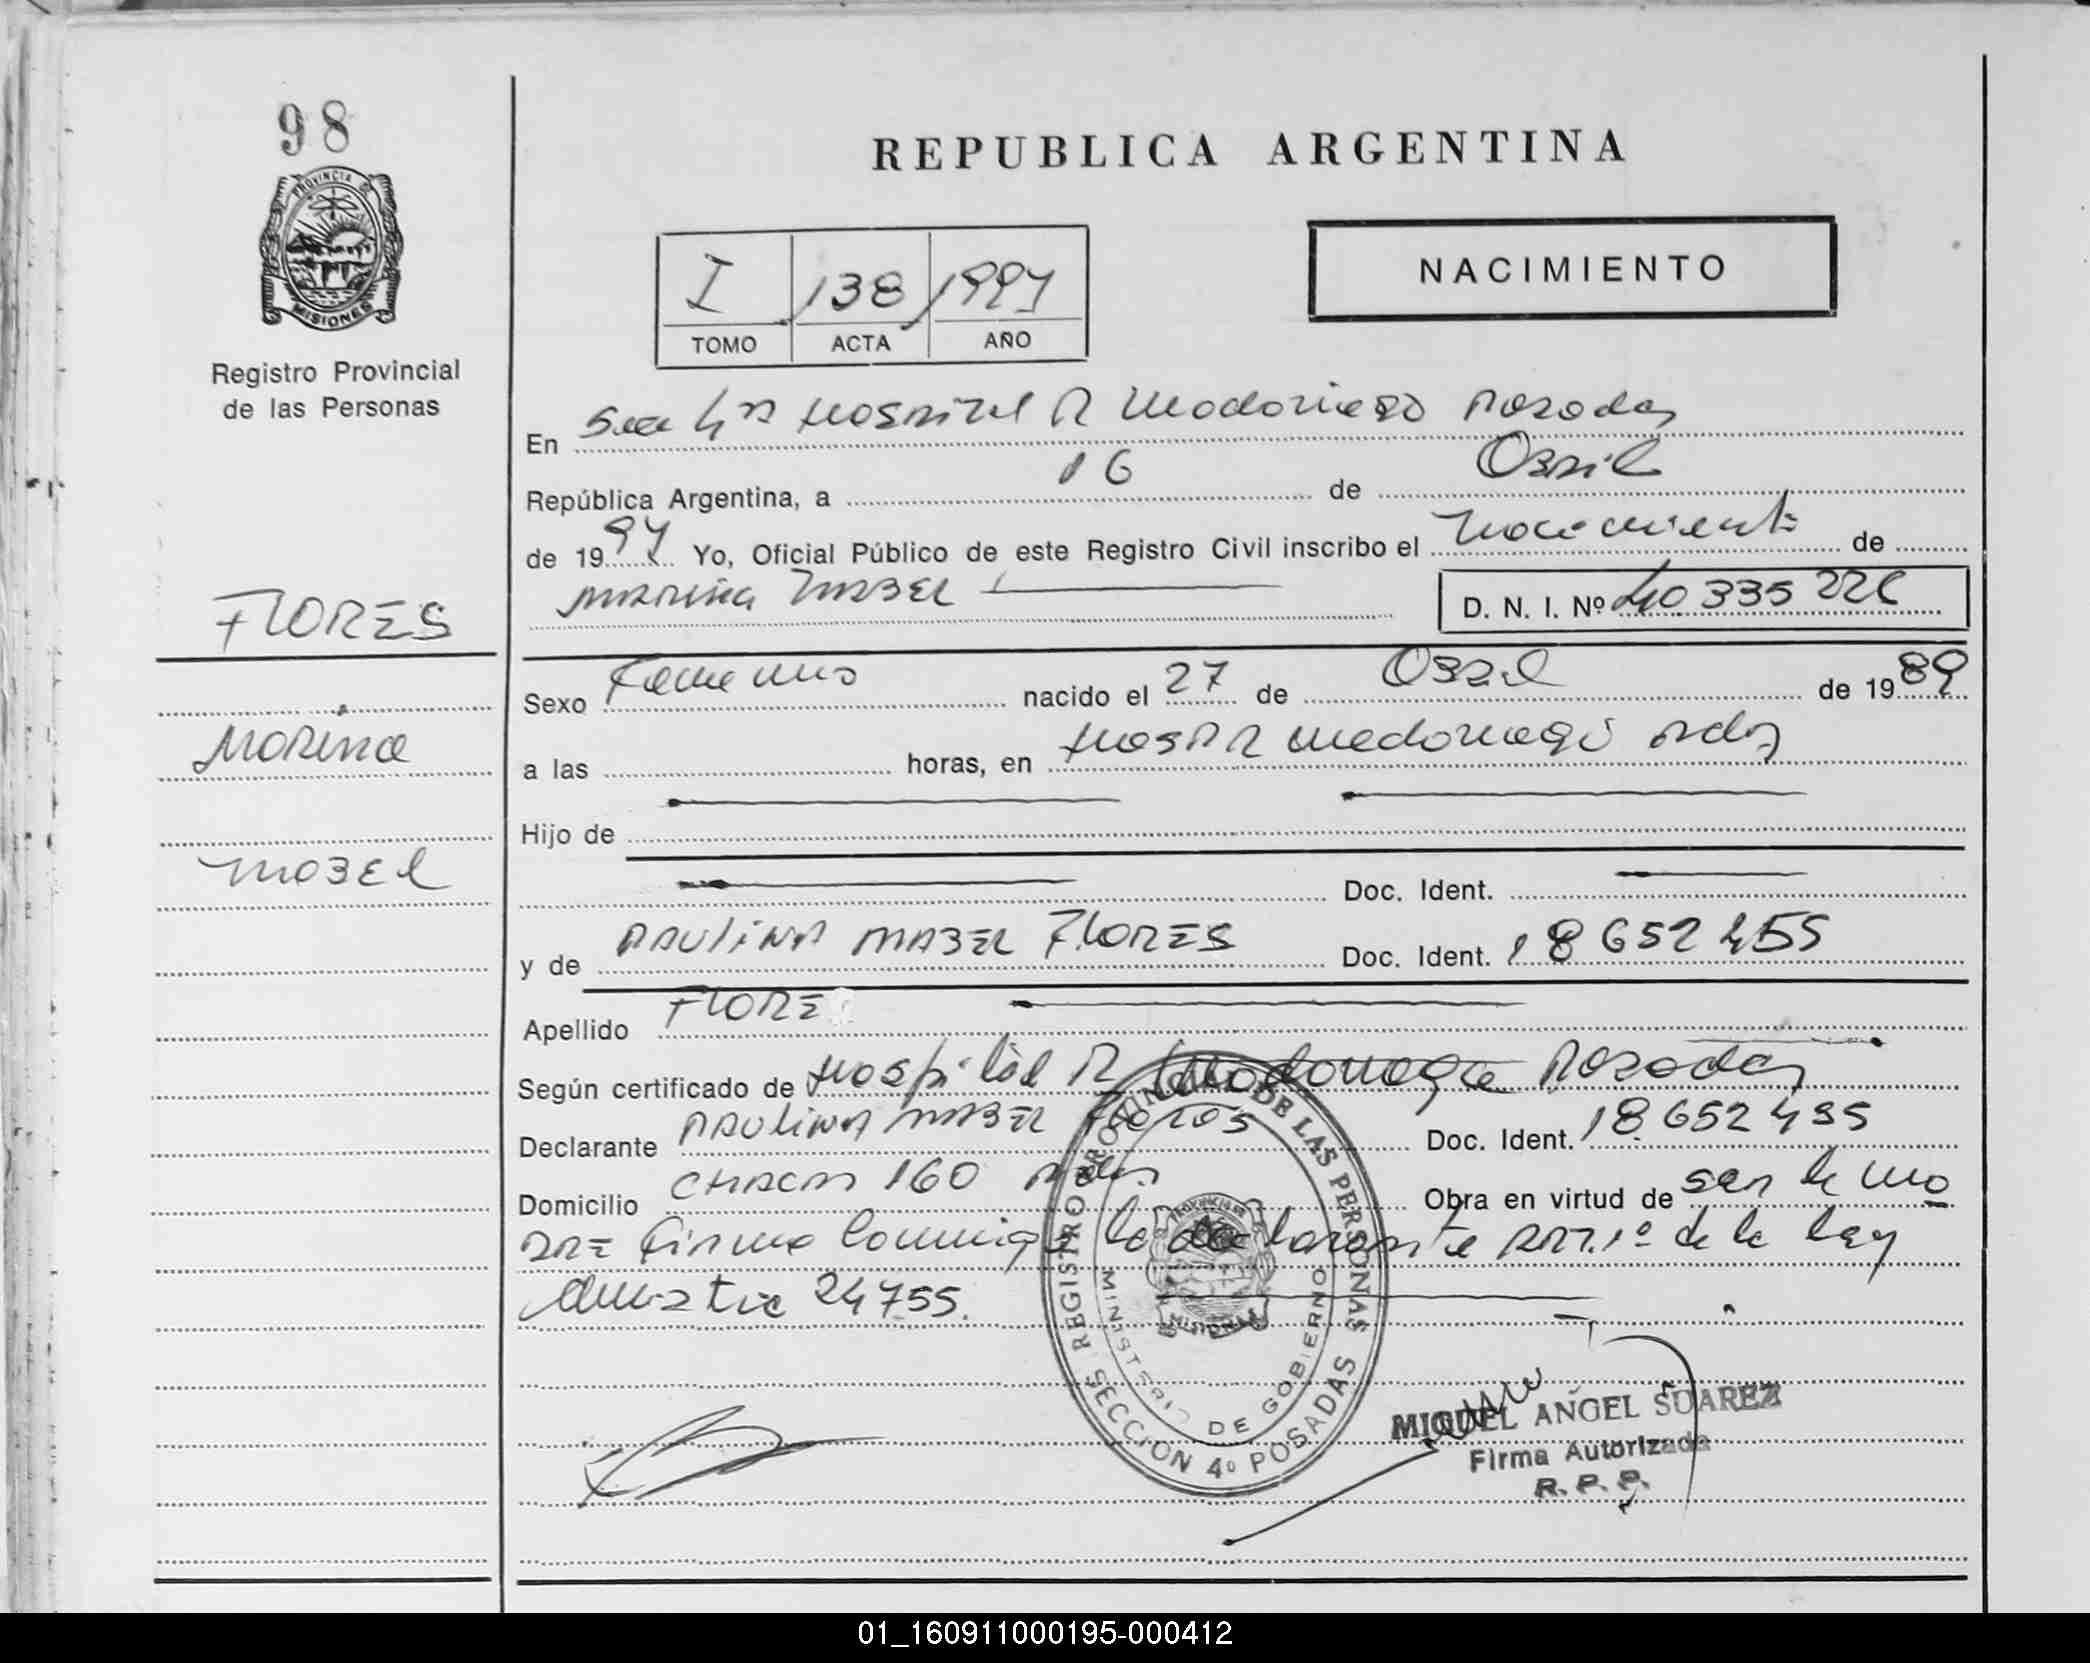 98
REPUBLICA ARGENTINA
PROVINCIA DE
MISIONES
NACIMIENTO
I 138 1997
TOMO ACTA AÑO
Registro Provincial
de las Personas
En Sec 4ta Hospital R Madariaga Posadas
República Argentina, a 16 de Abril
de 1997 Yo, Oficial Público de este Registro Civil inscribo el Nacimiento de
Marina Mabel D. N. I. Nº 40 335 226
FLORES
Sexo Femenino nacido el 27 de Abril de 1989
Marina
a las horas, en Hosp R Madariaga Pdas
Hijo de
Mabel
Doc. Ident.
y de PAULINA MABEL FLORES Doc. Ident. 18 652 455
Apellido FLORES
Según certificado de Hospital R Madariaga Posadas
Declarante PAULINA MABEL Flores Doc. Ident. 18 652 435
Domicilio 160 Pdas. Obra en virtud de ser la ma
dre firma Conmigo la declarante ART. 1º de la ley
Amnistia 24755.
REGISTRO PROVINCIAL DE LAS PERSONAS
MINISTERIO DE GOBIERNO
SECCION 4º POSADAS
MISIONES
MIGUEL ANGEL SUAREZ
Firma Autorizada
R. P. P.
01_160911000195-000412